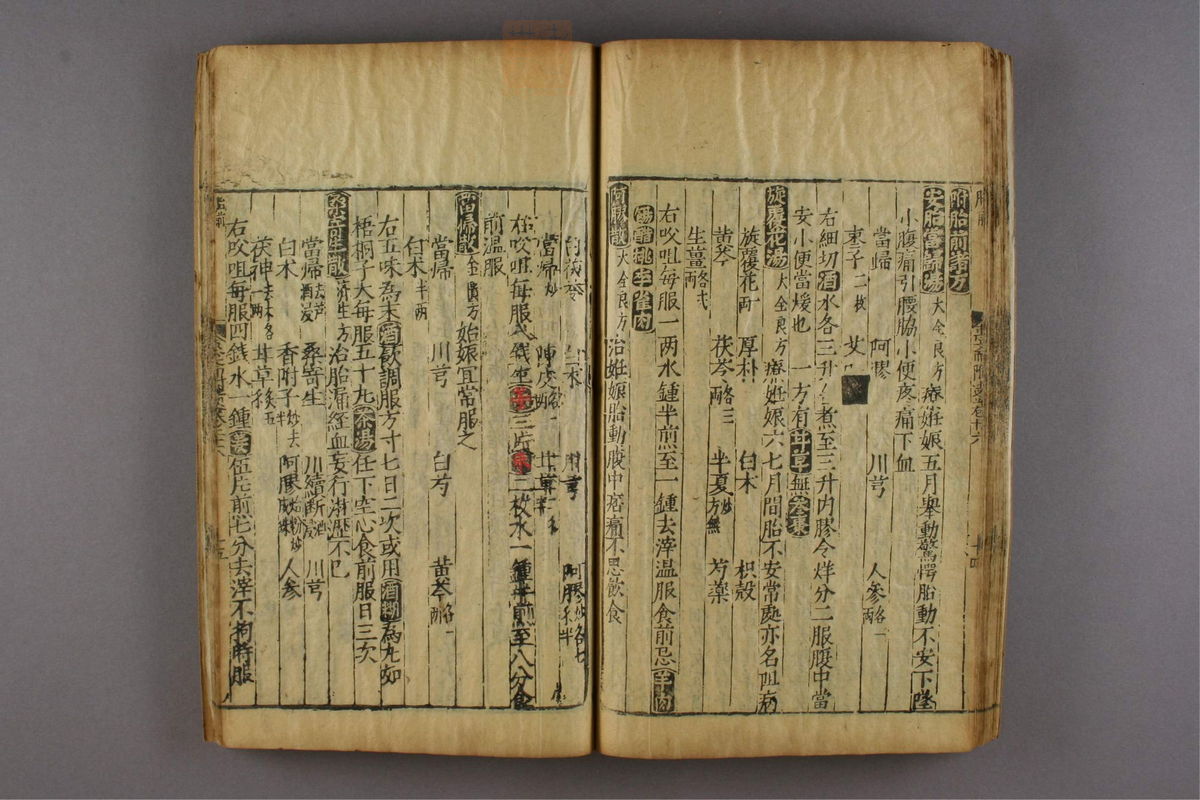 附胎前諸方
安胎當歸湯大全良方療姙娠五月舉動驚愕胎動不安下墜
小腹痛引腰脇小便疼痛下血
當歸 阿膠 川芎 人參各一兩
棗子二枚 艾
右細切酒水各三升煮至三升內膠令烊分二服腹中當
安小便當煖也 一方有甘草無參棗
旋覆花湯大全良方療姙娠六七月間胎不安常處亦名阻病
旋覆花一兩 厚朴 白术 枳殼
黃芩 茯苓各三兩 半夏炒方無 芍藥
生薑各弍兩
右㕮咀每服一兩水鍾半煎至一鍾去滓温服食前忌羊肉
餳醋桃李雀肉
阿膠散大全良方治姙娠胎動腹中痞痛不思飲食
白茯苓 白术 川芎 阿膠炒各七錢半
當歸炒 陳皮各一兩 甘草一錢
右㕮咀每服弍錢生姜三片棗三枚水一鍾半煎至八分食
前温服
當歸散金匱方姙娠宜常服之
當歸 川芎 白芍 黃芩各一兩
白术半兩
右五味為末酒飲調服方寸七日二次或用酒糊為丸如
梧桐子大每服五十丸茶湯任下空心食前服日三次
桑寄生散濟生方治胎漏經血妄行淋瀝不已
當歸去芦酒浸 桑寄生 川續断酒浸 川芎
白术 香附子炒去毛 阿膠蛤粉炒成珠 人參
茯神去木各一兩 甘草炙五
右㕮咀每服四錢水一鍾姜伍片煎七分去滓不拘時服